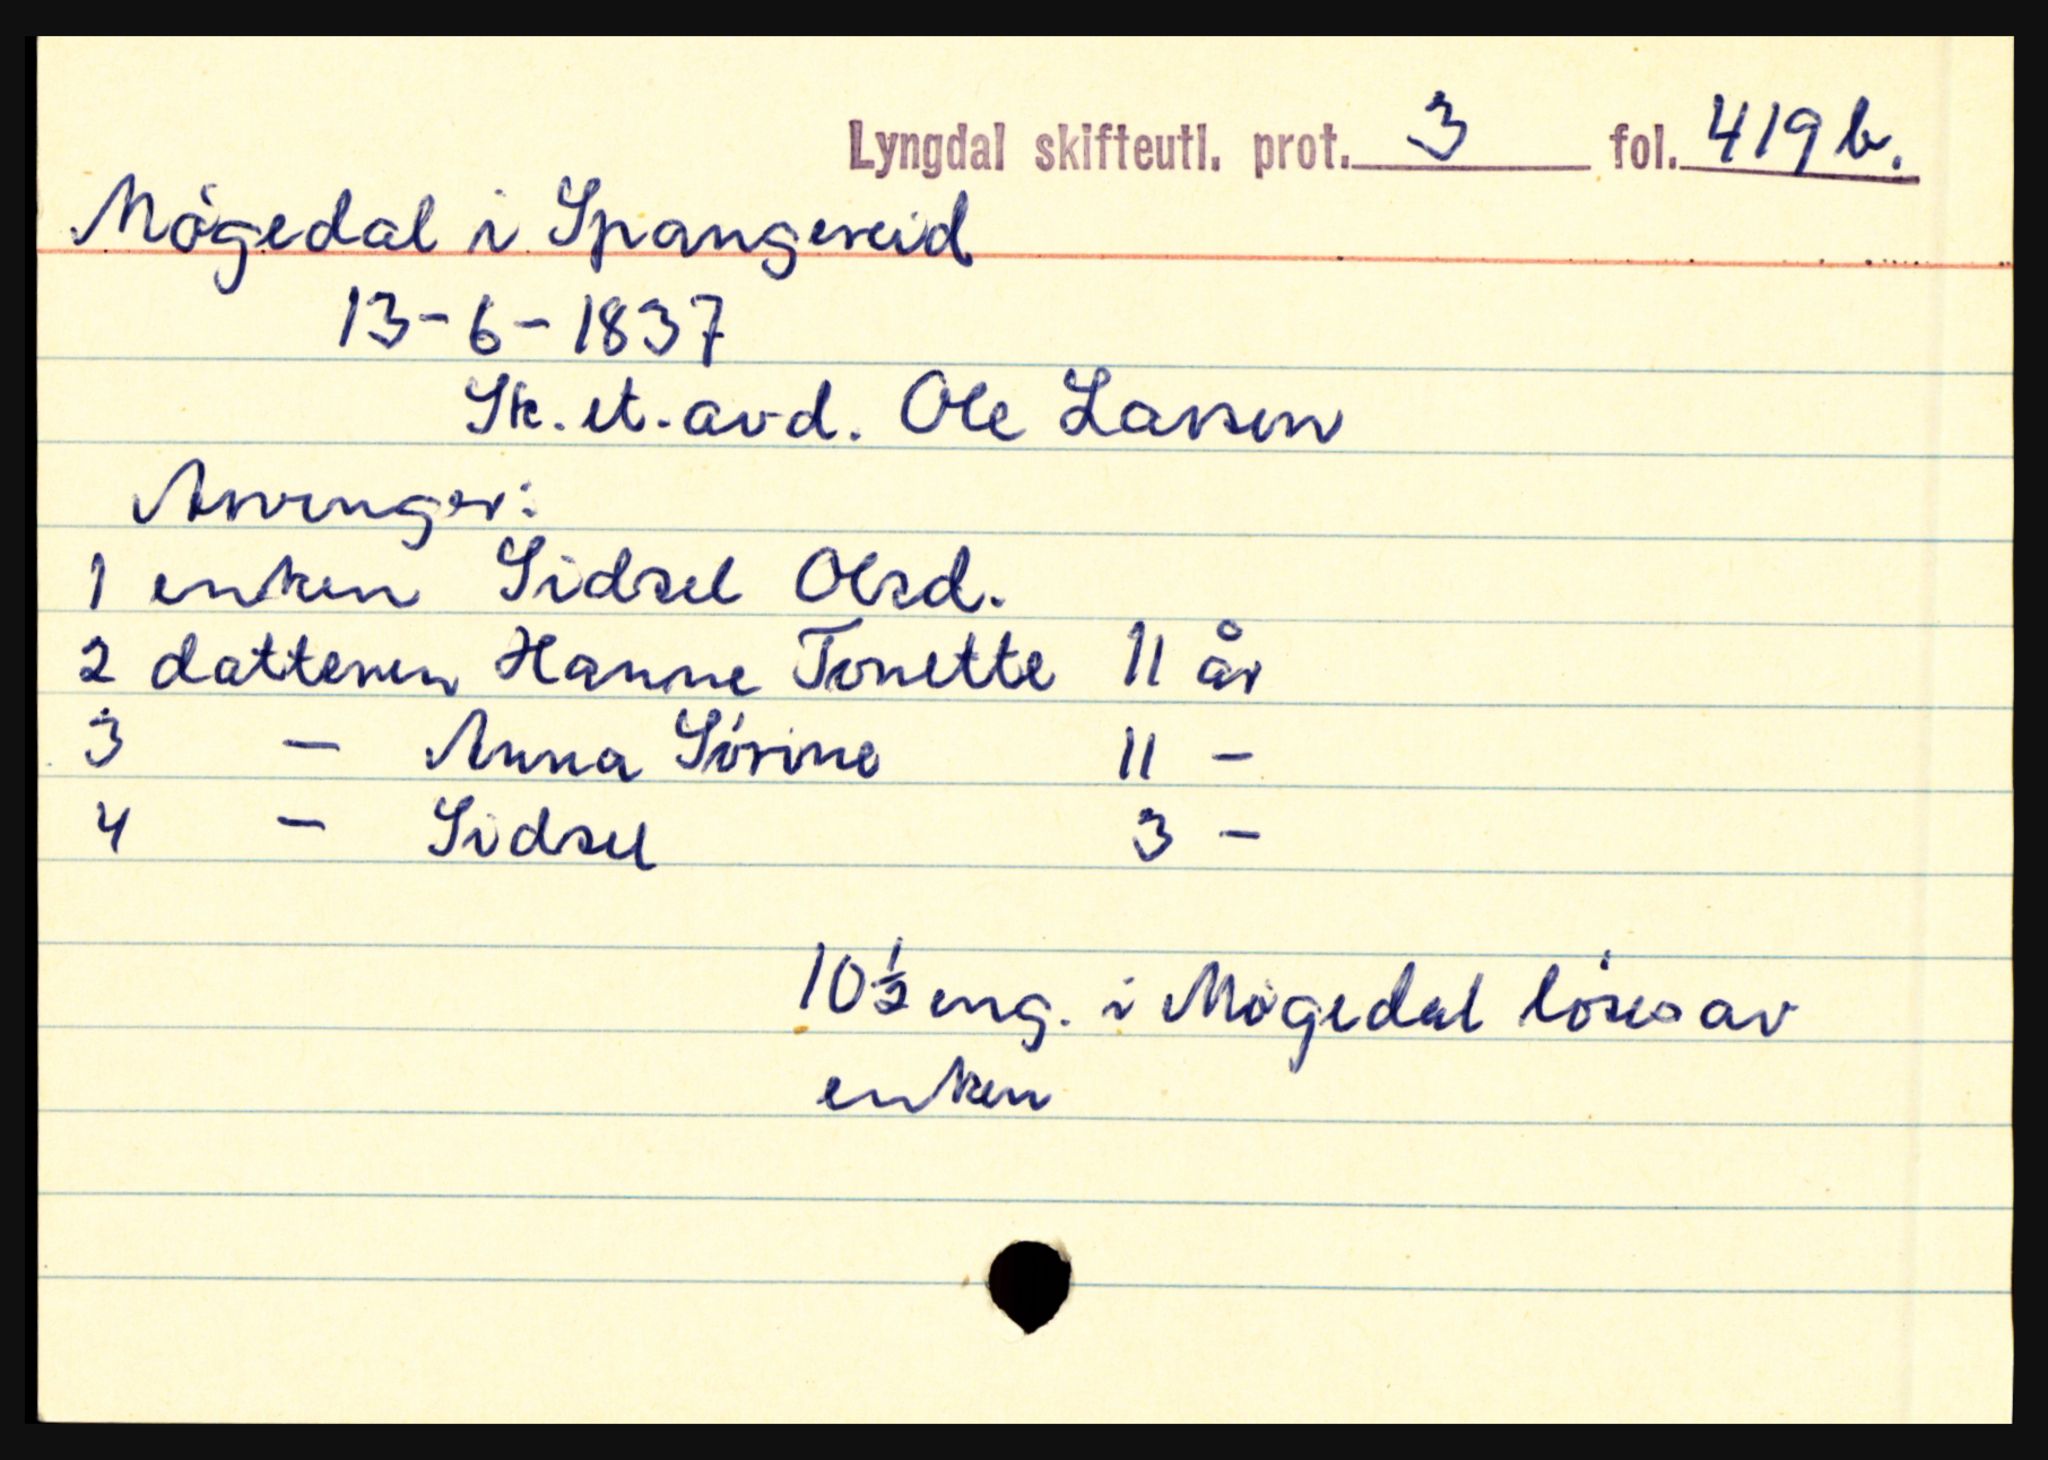 Lyngdal skifteutl. prot. 3 fol. 419 b.
Møgedal i Spangereid
13-6-1837
Sk. et. avd. Ole Larsen
Arvinger:
1 enken Sidsel Olsd.
2 datteren Hanne Tonette 11 år
3 - Anna Sørine 11 -
4 - Sidsel 3 -
10 ½ eng. i Møgedal løses av
enken